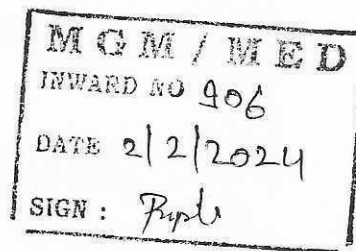 MGM / MED
INWARD NO 906
DATE 2/2/2024
SIGN :